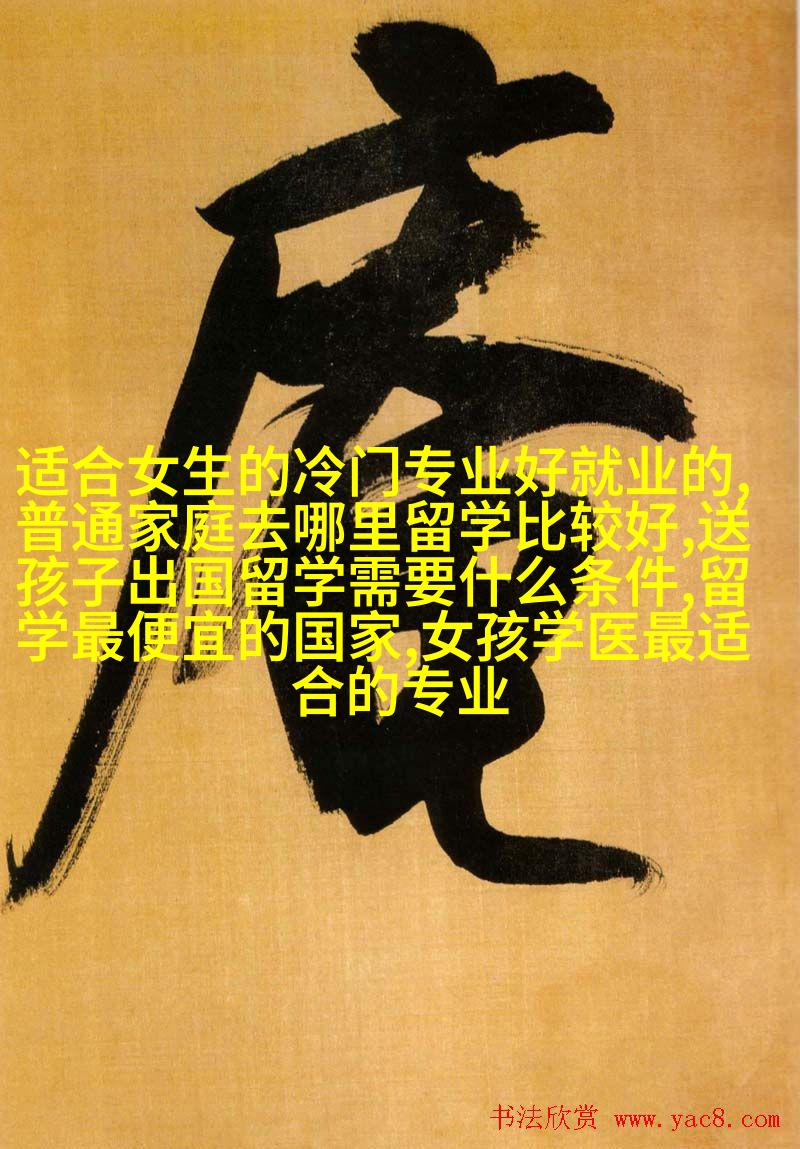 庵
适合女生的冷门专业好就业的,
普通家庭去哪里留学比较好,送
孩子出国留学需要什么条件,留
学最便宜的国家,女孩学医最适
合的专业
书法欣赏 www.yac8.com